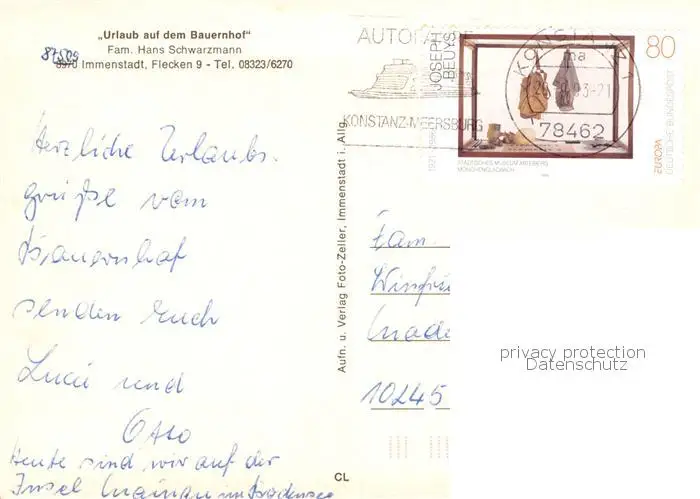 „Urlaub auf dem Bauernhof"
Fam. Hans Schwarzmann
87509
8970 Immenstadt, Flecken 9 - Tel. 08323/6270
Herzliche Urlaubs-
grüße vom
Bauernhof
senden Euch
Luci und
Otto
Heute sind wir auf der
Insel Mainau im Bodensee
Aufn. u. Verlag Foto-Zeller, Immenstadt i. Allg.
CL
AUTOFÄHRE
KONSTANZ-MEERSBURG
KONSTANZ 1
ma
78462
JOSEPH
BEUYS
80
DEUTSCHE BUNDESPOST
EUROPA
STÄDTISCHES MUSEUM ABTEIBERG
MÖNCHENGLADBACH
Fam.
10245
privacy protection
Datenschutz